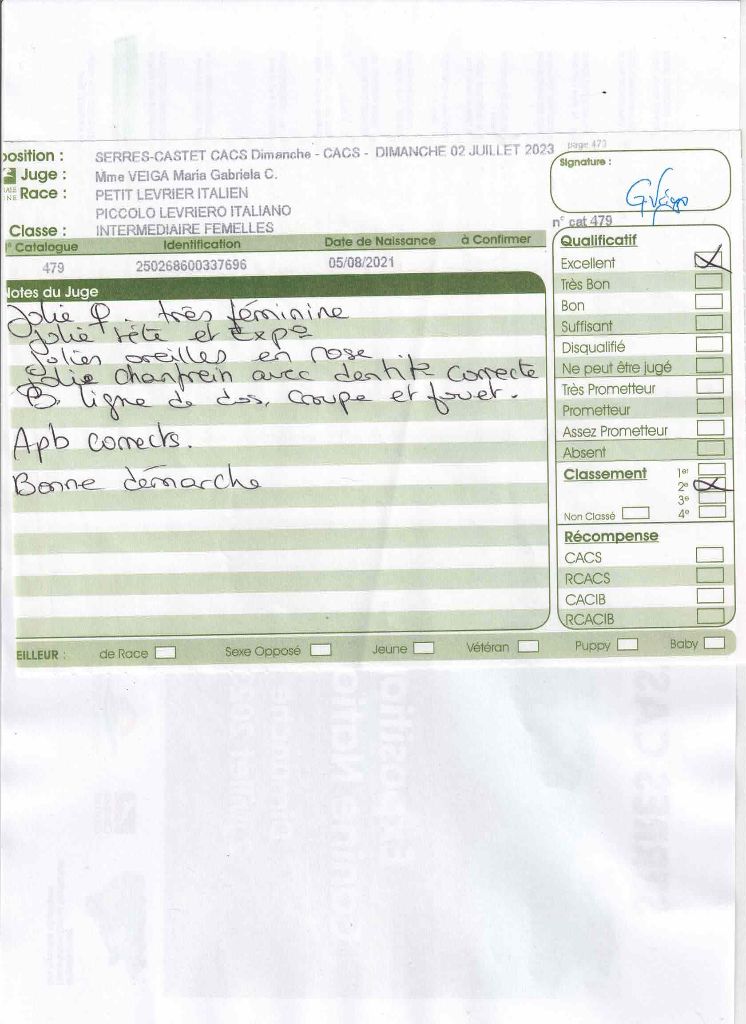 page 473
position : SERRES-CASTET CACS Dimanche - CACS - DIMANCHE 02 JUILLET 2023
Juge : Mme VEIGA Maria Gabriela C.
Race : PETIT LEVRIER ITALIEN
PICCOLO LEVRIERO ITALIANO
Classe : INTERMEDIAIRE FEMELLES
Signature :
n° cat 479
Catalogue Identification Date de Naissance à Confirmer
479 250268600337696 05/08/2021
Notes du Juge
Jolie ♀. très féminine
Jolie tête et Expo
Jolies oreilles en rose
Jolie chanfrein avec dentite correcte
B. ligne de dos, croupe et fouet.
Apb corrects.
Bonne démarche
Qualificatif
Excellent
Très Bon
Bon
Suffisant
Disqualifié
Ne peut être jugé
Très Prometteur
Prometteur
Assez Prometteur
Absent
Classement 1er
2e
3e
Non Classé 4e
Récompense
CACS
RCACS
CACIB
RCACIB
EILLEUR : de Race Sexe Opposé Jeune Vétéran Puppy Baby